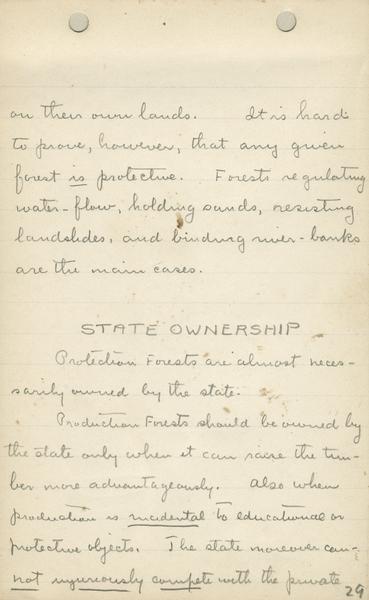 on their own lands. It is hard
to prove, however, that any given
forest is protective. Forests regulating
water-flow, holding sands, resisting
landslides, and binding river-banks
are the main cases.
STATE OWNERSHIP
Protection Forests are almost neces-
sarily owned by the state.
Production Forests should be owned by
the state only when it can raise the tim-
ber more advantageously. Also when
production is incidental to educational or
protective objects. The state moreover can-
not injuriously compete with the private
29